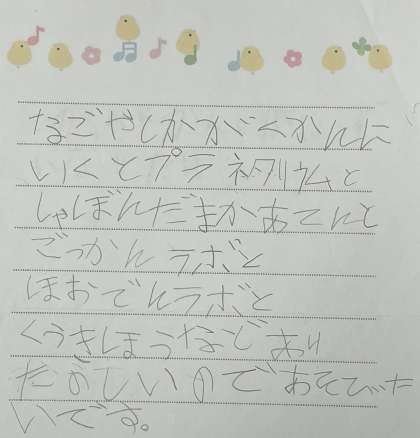 なごやしかがくかんに
いくとプラネタリウムと
しゃぼんだまかあてんと
ごっかんラボと
ほおでんラボと
くうきほうなどあり
たのしいのであそびた
いです。